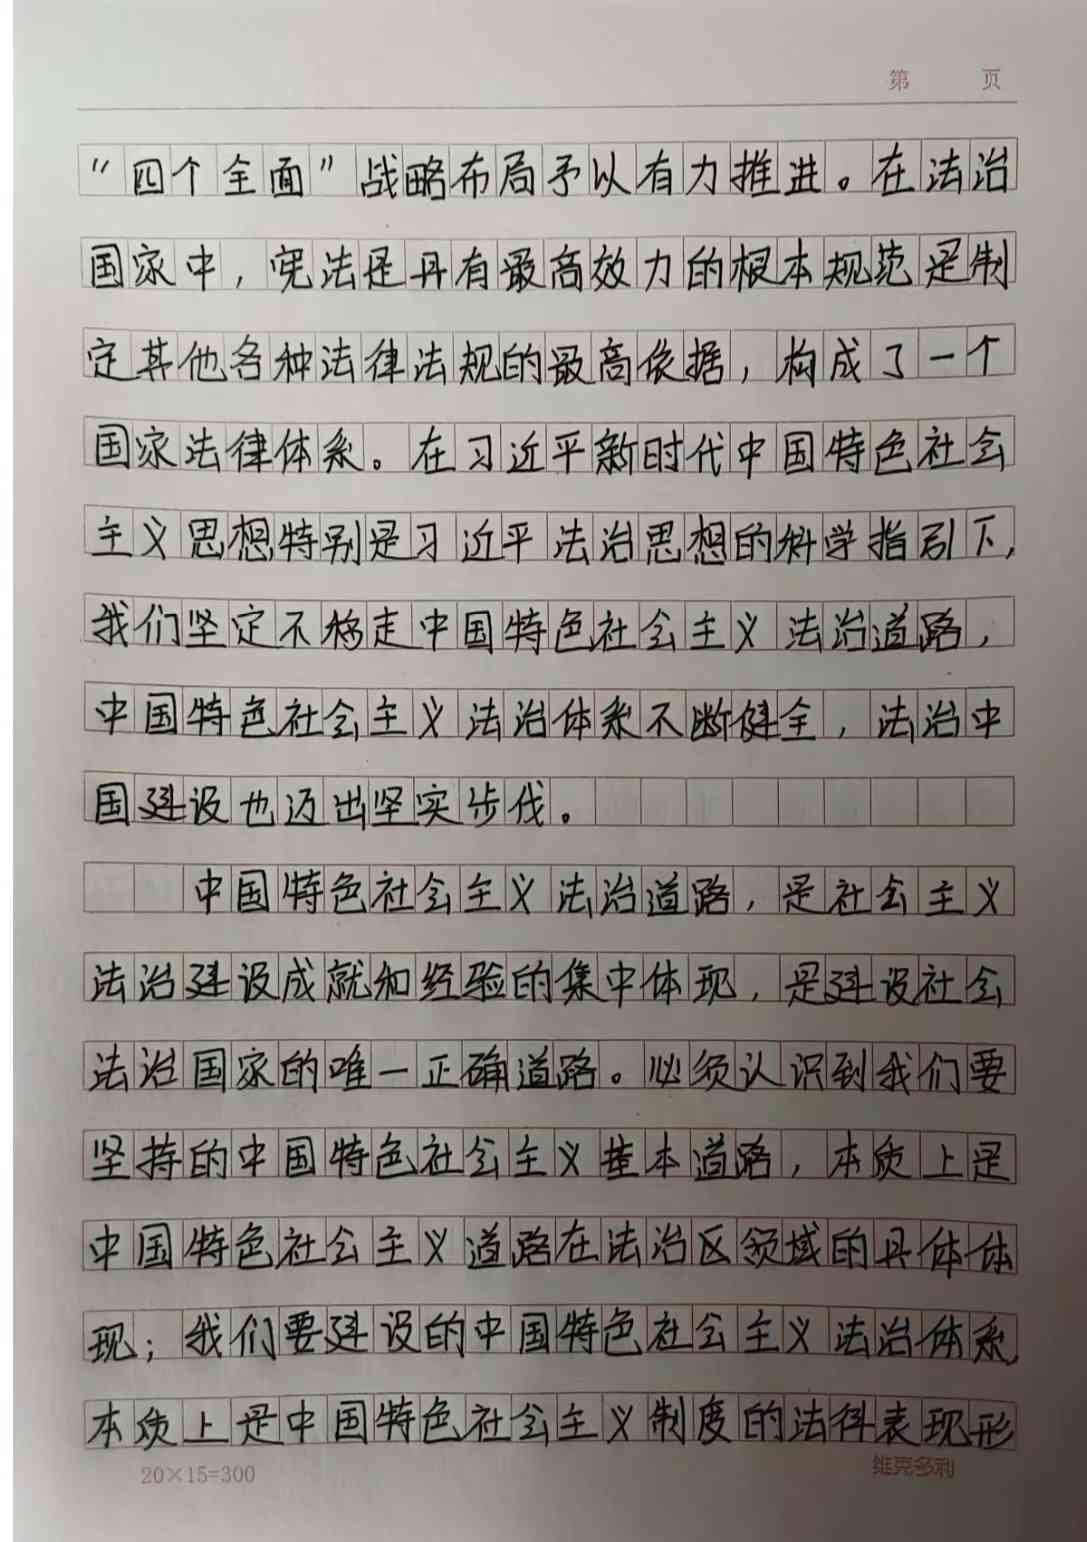 第 页
“四个全面”战略布局予以有力推进。在法治
国家中，宪法是具有最高效力的根本规范是制
定其他各种法律法规的最高依据，构成了一个
国家法律体系。在习近平新时代中国特色社会
主义思想特别是习近平法治思想的科学指引下，
我们坚定不移走中国特色社会主义法治道路，
中国特色社会主义法治体系不断健全，法治中
国建设也迈出坚实步伐。
中国特色社会主义法治道路，是社会主义
法治建设成就和经验的集中体现，是建设社会
法治国家的唯一正确道路。必须认识到我们要
坚持的中国特色社会主义基本道路，本质上是
中国特色社会主义道路在法治区领域的具体体
现；我们要建设的中国特色社会主义法治体系，
本质上是中国特色社会主义制度的法律表现形
20×15=300 维克多利